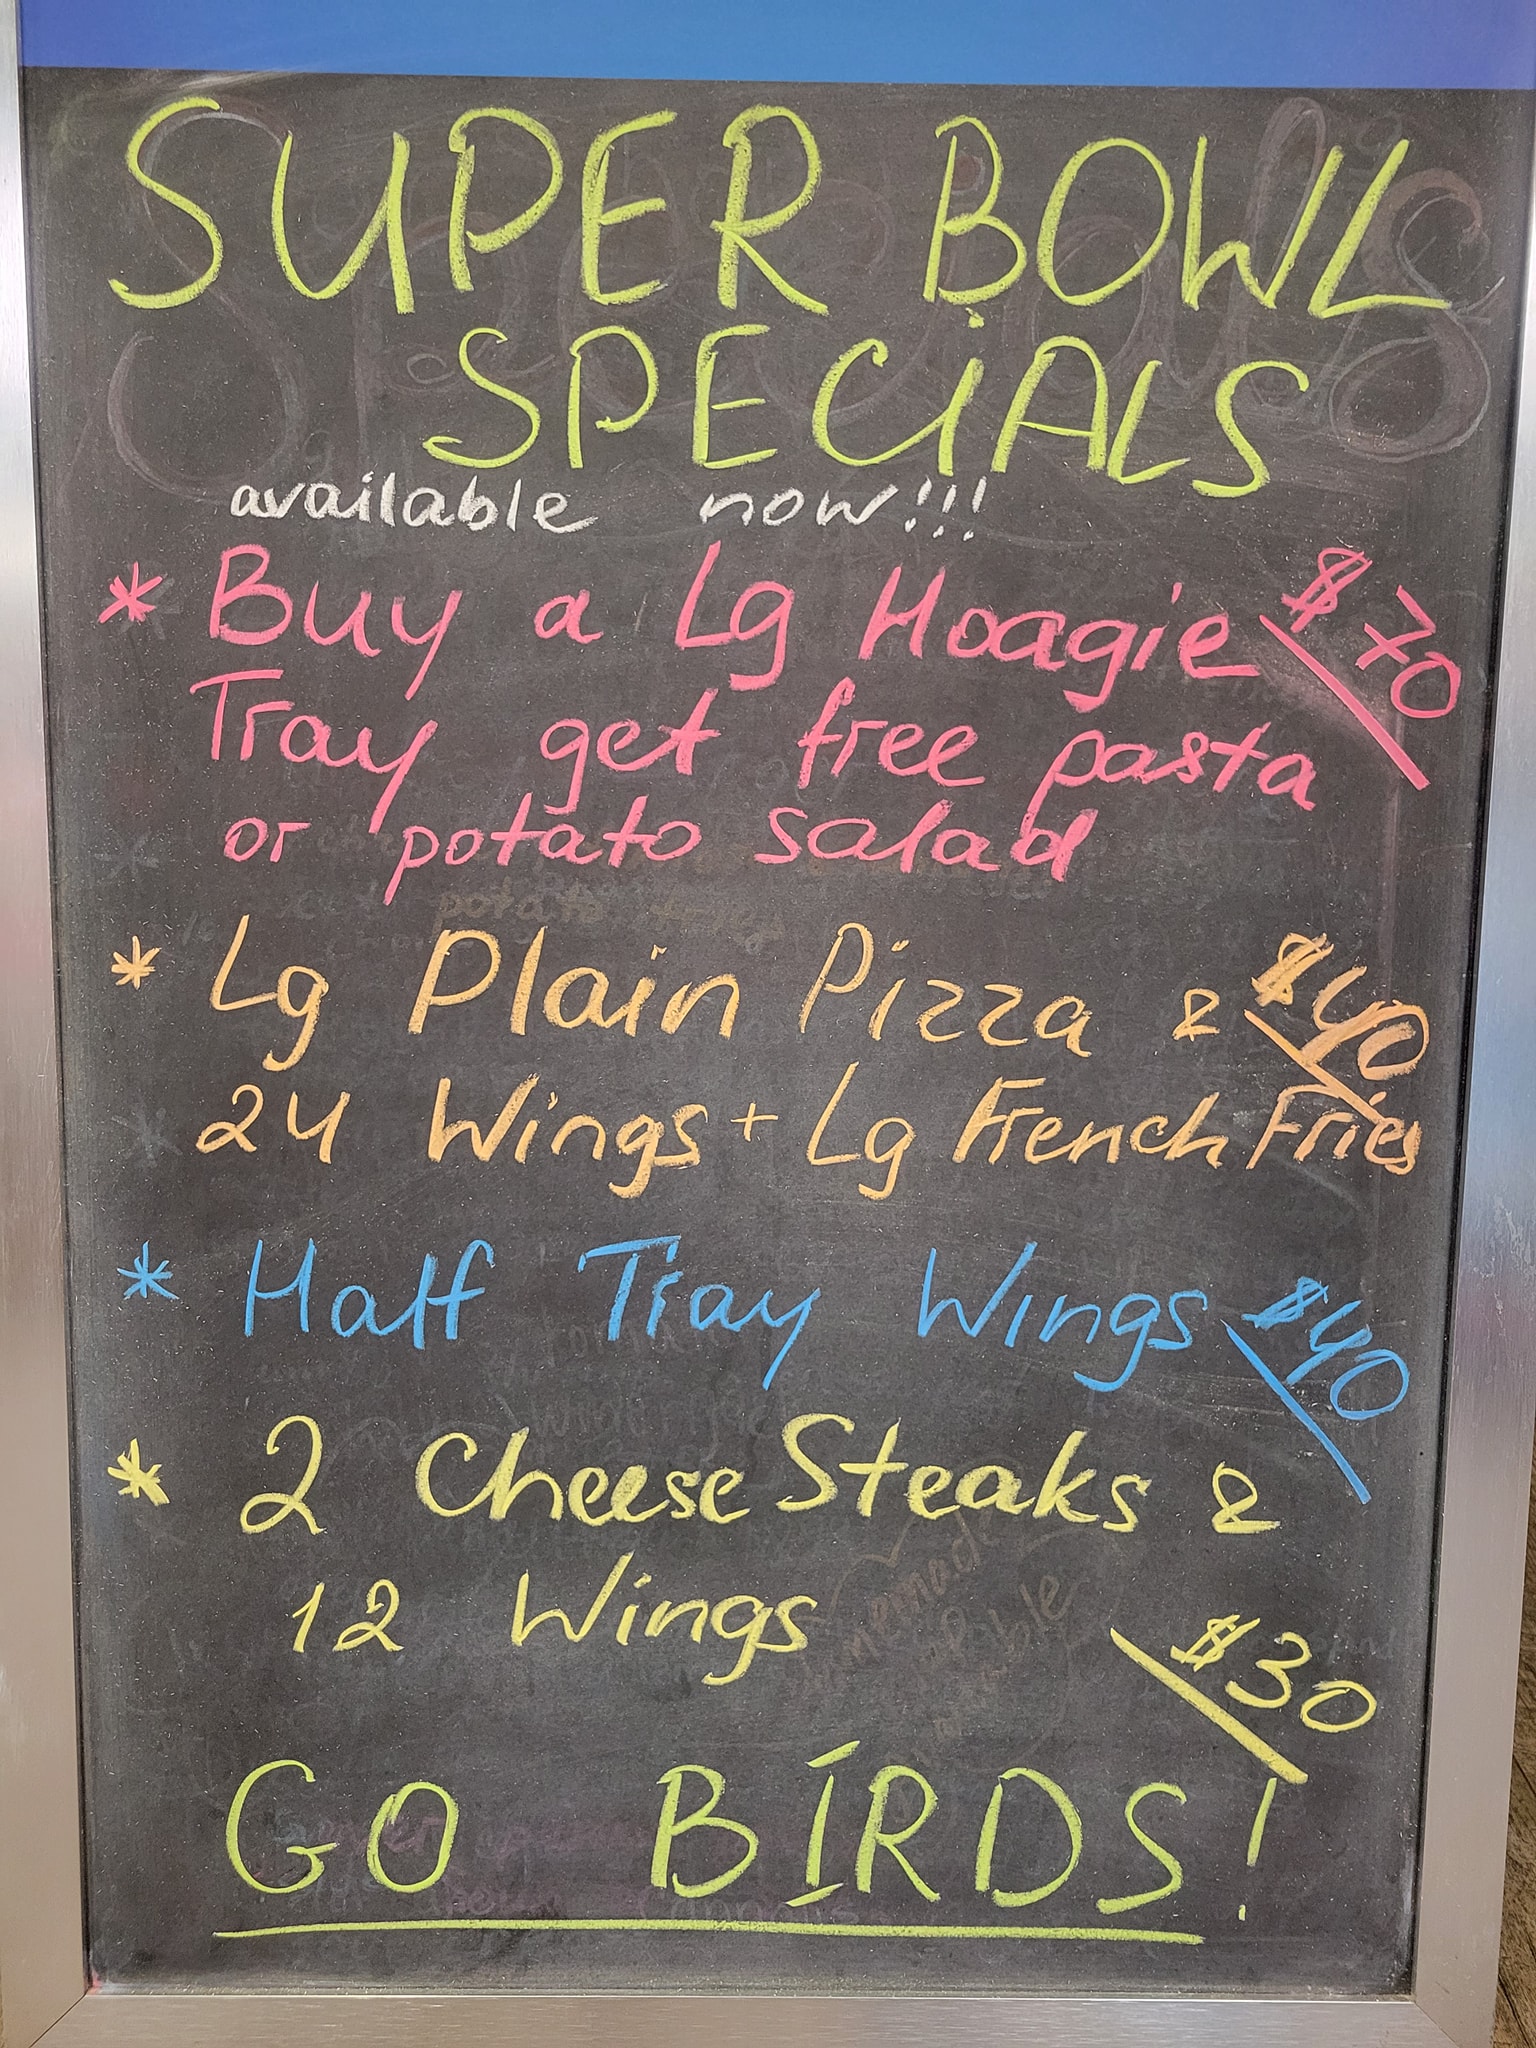 SUPER BOWL
SPECIALS
available now!!!
* Buy a Lg Hoagie $70
Tray get free pasta
or potato salad
* Lg Plain Pizza & $40
24 Wings + Lg French Fries
* Half Tray Wings $40
* 2 Cheese Steaks &
12 Wings $30
GO BIRDS!